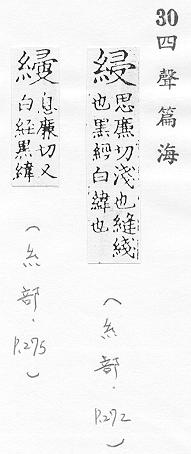 30 四聲篇海
綅
思廉切淺也縫綫
也黑經白緯也
(糸部.P.272)
息廉切又
白經黑緯
(糸部.P.275)